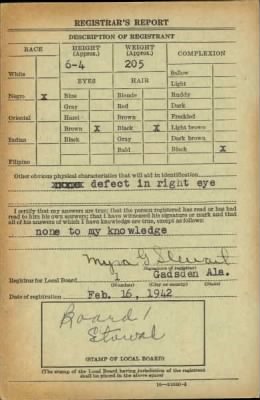 REGISTRAR'S REPORT
DESCRIPTION OF REGISTRANT
RACE HEIGHT (Approx.) WEIGHT (Approx.) COMPLEXION
6-4 205
White EYES HAIR Sallow
Light
Negro X Blue Blonde Ruddy
Gray Red Dark
Oriental Hazel Brown Freckled
Brown X Black X Light brown
Indian Black Gray Dark brown
Bald Black X
Filipino
Other obvious physical characteristics that will aid in identification
defect in right eye
I certify that my answers are true; that the person registered has read or has had
read to him his own answers; that I have witnessed his signature or mark and that
all of his answers of which I have knowledge are true, except as follows:
none to my knowledge
Myra G Stewart
(Signature of registrar)
Registrar for Local Board 2 Gadsden Ala.
(Number) (City or county) (State)
Date of registration Feb. 16, 1942
Board 1
(STAMP OF LOCAL BOARD)
(The stamp of the Local Board having jurisdiction of the registrant
shall be placed in the above space)